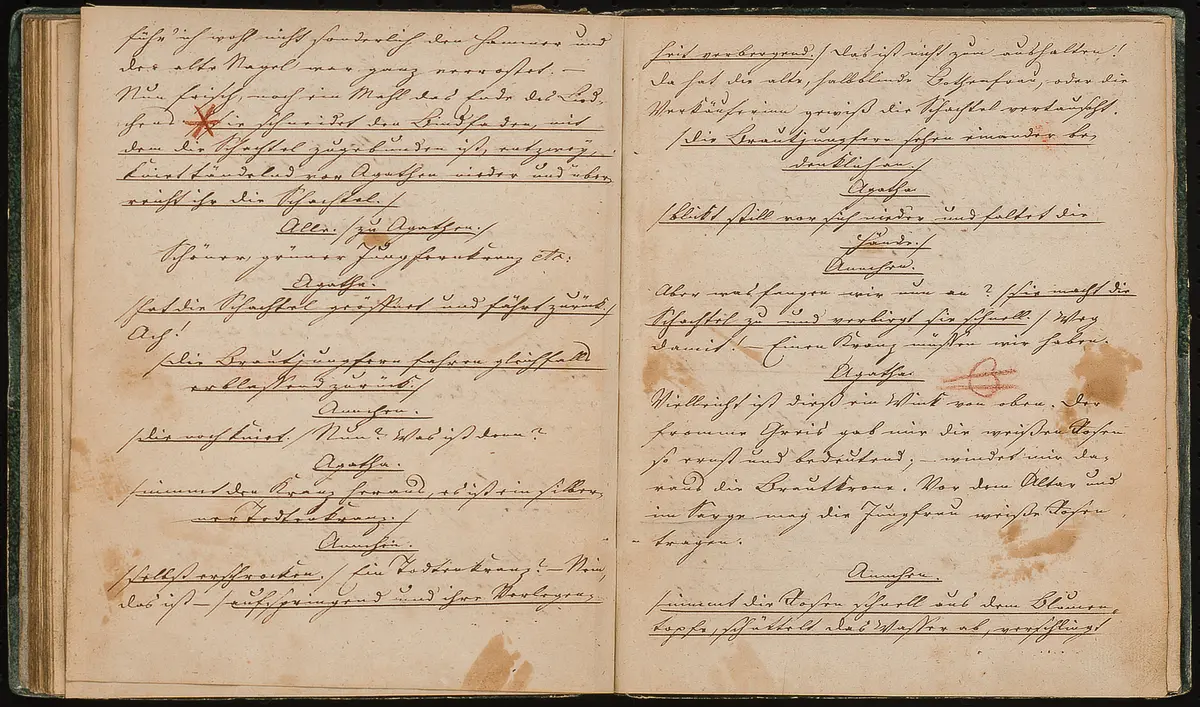 führ' ich wohl nicht sonderlich den Hammer und
der alte Nagel war ganz verrostet. —
Nun frisch, noch ein Mahl das Ende des Lied-
chens. /Sie schneidet den Bindfaden, mit
dem die Schachtel zugebunden ist, entzwey,
kniet tändelnd vor Agathen nieder und über-
reicht ihr die Schachtel./
Alle. /zu Agathen./
Schöner, grüner Jungfernkranz etc:
Agatha.
/hat die Schachtel geöffnet und fährt zurück./
Ach!
/Die Brautjungfern fahren gleichfalls
erblassend zurück./
Annchen.
/die noch kniet./ Nun? Was ist denn?
Agatha.
/nimmt den Kranz heraus, es ist ein silber-
ner Todtenkranz./
Annchen.
/selbst erschrocken./ Ein Todtenkranz! — Nein,
das ist — /aufspringend und ihre Verlegen-
heit verbergend./ Das ist nicht zum aushalten!
Da hat die alte, halbblinde Bothenfrau, oder die
Verkäuferinn gewiß die Schachtel vertauscht.
/Die Brautjungfern sehen einander be-
denklich an./
Agatha
/blickt still vor sich nieder und faltet die
Hände./
Annchen.
Aber was fangen wir nun an? /Sie macht die
Schachtel zu und verbirgt sie schnell./ Weg
damit! — Einen Kranz müssen wir haben.
Agatha.
Vielleicht ist dieß ein Wink von oben. Der
fromme Greis gab mir die weißen Rosen
so ernst und bedeutend; — windet mir da-
raus die Brautkrone. Vor dem Altar und
im Sarge mag die Jungfrau weiße Rosen
tragen.
Annchen.
/nimmt die Rosen schnell aus dem Blumen-
topfe, schüttelt das Wasser ab, verschlingt